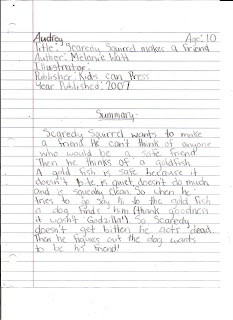 Audrey Age: 10
Title: Scaredy Squirrel makes a friend
Author: Melanie Watt
Illustrator:
Publisher: Kids can Press
Year Published: 2007
Summary
Scaredy Squirrel wants to make
a friend. He can't think of anyone
who would be a safe friend.
Then he thinks of a goldfish.
A gold fish is safe because it
doesn't bite, is quiet, doesn't do much
and is squeaky clean. So when he
tries to go say hi to the gold fish
a dog finds him (thank goodness
it wasn't Godzilla!). So Scaredy
doesn't get bitten he acts dead.
Then he figures out the dog wants
to be his friend!